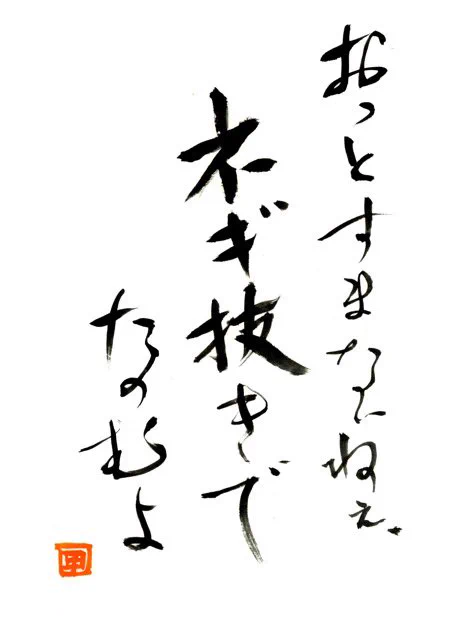 おっとすまないねぇ。
ネギ抜きで
たのむよ